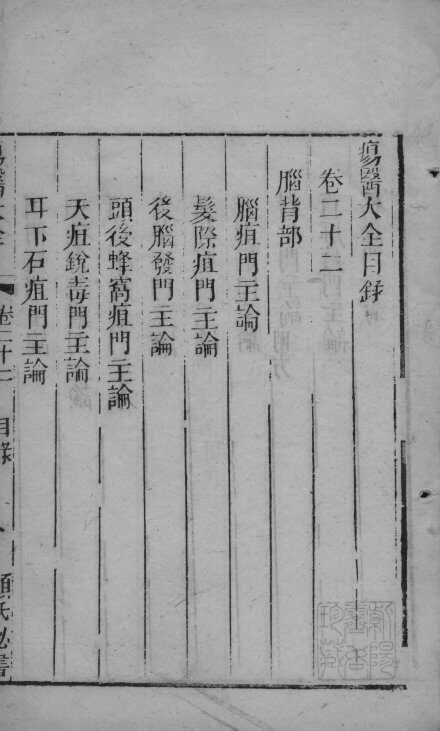 瘍醫大全目錄
卷二十二
腦背部
腦疽門主論
髮際疽門主論
後腦發門主論
頭後蜂窩疽門主論
天疽銳毒門主論
耳下石疽門主論
瘍醫大全 卷二十二 目錄 顧氏秘書